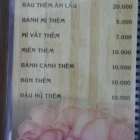 RAU THÊM ĂN LẨU 20.000
BÁNH MÌ THÊM 5.000
MÌ VẮT THÊM 7.000
MIẾN THÊM 10.000
BÁNH CANH THÊM 10.000
BÚN THÊM 10.000
ĐẬU HŨ THÊM 10.000